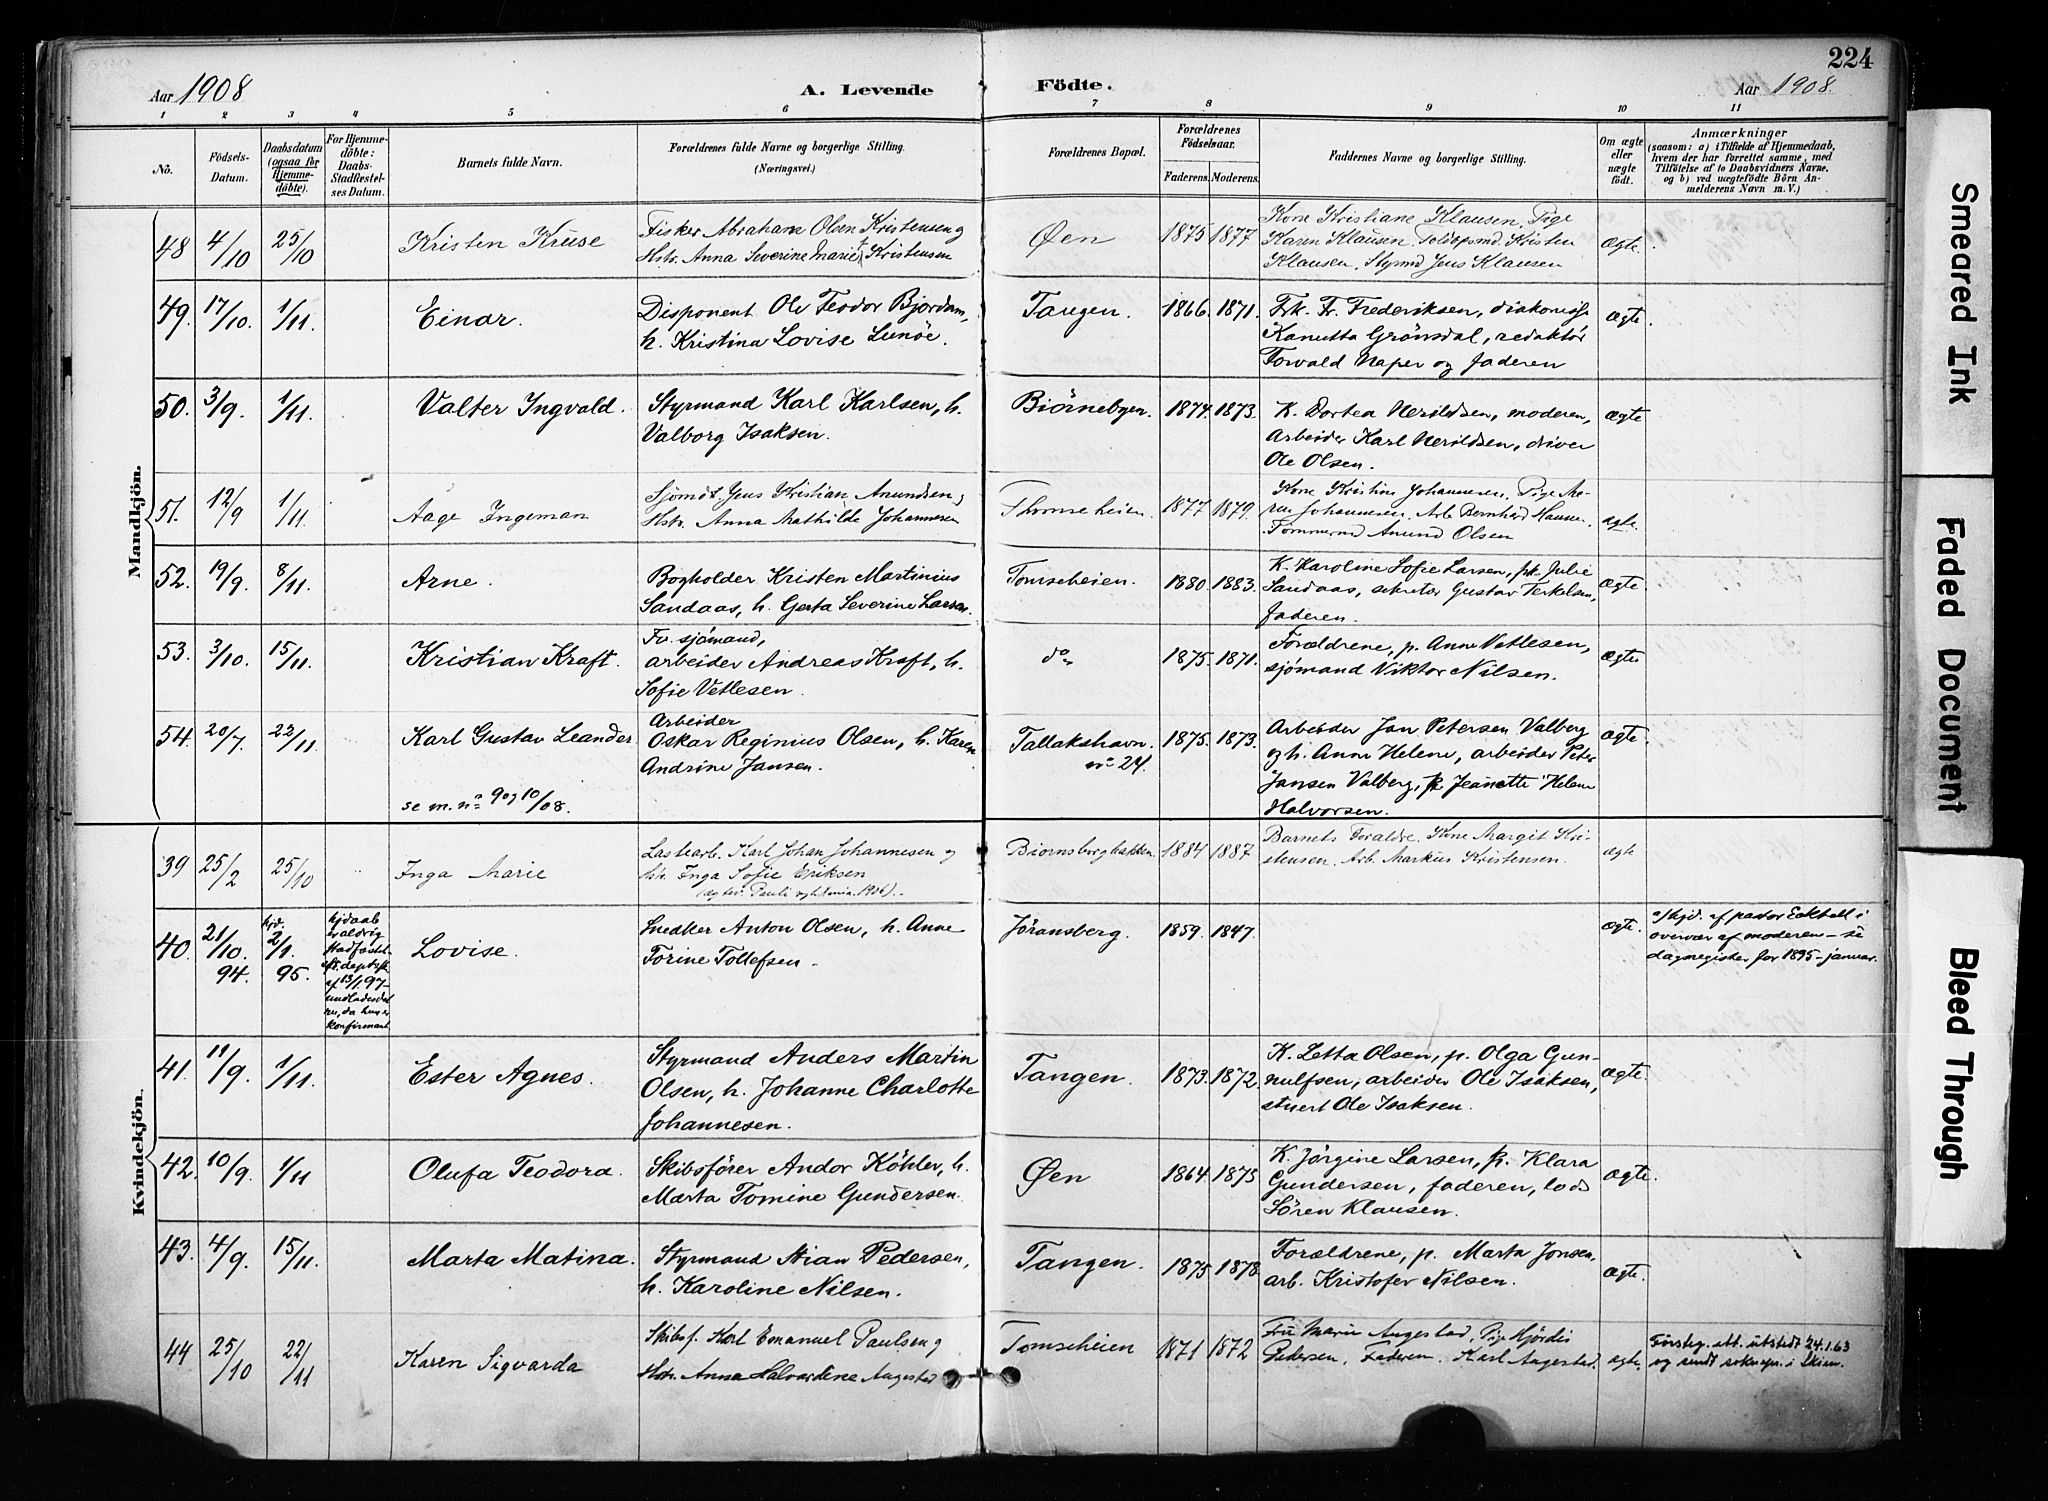 224
Aar 1908
A. Levende
Födte.
Aar 1908.
1 2 3 4 5 6 7 8 9 10 11
No.
Födsels-
Datum.
Daabsdatum
(ogsaa for
Hjemme-
döbte).
For Hjemme-
döbte:
Daabs-
Stadfæstel-
ses Datum.
Barnets fulde Navn.
Forældrenes fulde Navne og borgerlige Stilling.
(Næringsvei.)
Forældrenes Bopæl.
Forældrenes
Födselsaar.
Faderens. Moderens.
Faddernes Navne og borgerlige Stilling.
Om ægte
eller
uægte
födt.
Anmærkninger
(saasom: a) i Tilfælde af Hjemmedaab,
hvem der har forrettet samme, med
Tilföielse af to Daabsvidners Navne,
og b) ved uægtefödte Börn An-
melderens Navn m. V.)
Mandkjön.
48 4/10 25/10 Kristen Kruse
Fisker Abraham Olsen Kristensen og
Hstr. Anna Severine Marie Kristensen
Øen 1875 1877
Kone Kristiane Klausen, Pige
Karen Klausen, Toldopsmd. Kristen
Klausen, Styrmd Jens Klausen
ægte
49. 17/10. 1/11. Einar.
Disponent Ole Teodor Bjordam,
h. Kristina Lovise Lunöe.
Tangen. 1866. 1871.
Frk. Fr. Frederiksen, diakonisse
Kanutta Grönsdal, redaktör
Torvald Naper og faderen
ægte.
50. 3/9. 1/11. Valter Ingvald.
Styrmand Karl Karlsen, h.
Valborg Isaksen.
Biörnebyen. 1874. 1873.
K. Dortea Nerildsen, moderen,
Arbeider Karl Nerildsen, driver
Ole Olsen.
ægte
51. 12/9 1/11 Aage Ingeman
Sjömd. Jens Kristian Amundsen,
Hstr. Anna Mathilde Johannesen
Thomseheien. 1877 1879.
Kone Kristine Johannesen, Pige Ma-
ren Johannesen, Arb. Bernhard Hansen,
Tömmermd Amund Olsen
ægte.
52. 19/9. 8/11. Arne.
Bogholder Kristen Martinius
Sandaas, h. Gerta Severine Larsen.
Tomseheien. 1880. 1883.
K. Karoline Sofie Larsen, pk. Julie
Sandaas, sekretær Gustav Terkelsen,
faderen.
ægte.
53. 3/10. 15/11. Kristian Kraft.
Fv. sjömand,
arbeider Andreas Kraft, h.
Sofie Vetlesen.
do 1875. 1871.
Forældrene, p. Anne Vetlesen,
sjömand Viktor Nilsen.
ægte
54. 20/7. 22/11. Karl Gustav Leander
se m. no 9 og 10/08.
Arbeider
Oskar Reginius Olsen, h. Karen
Andrine Jansen.
Tallakshavn. 1875. 1873.
no 24.
Arbeider Jan Petersen Valberg
og h. Anne Helene, arbeider Peter
Jansen Valberg, pk Jeanette Helene
Halvorsen.
ægte.
Kvindekjön.
39 25/2 25/10 Inga Marie
Lastearb. Karl Johan Johannesen og
Hstr. Inga Sofie Eriksen
Biornsborgbakken. 1884 1887
Barnets Foraldre. Kone Margit Kri-
stensen. Arb. Markus Kristensen.
ægte
40. 21/10. 94. hjd. 2/1. 95.
hjdaab
er aldrig
stadfæstet
af 13/1.97-
da hun er
konfirmant
Lovise.
Snedker Anton Olsen, h. Anne
Torine Tollefsen.
Jöransberg. 1859. 1847.
ægte.
a/ hjd. af pastor Eckholl i
overvær af moderen - se
dagsregister for 1895 - januar.
41. 11/9. 1/11. Ester Agnes.
Styrmand Anders Martin
Olsen, h. Johanne Charlotte
Johannesen.
Tangen. 1873. 1872.
K. Zetta Olsen, p. Olga Gun-
nulfsen, arbeider Ole Isaksen,
stuert Ole Isaksen.
ægte.
42. 10/9. 1/11 Olufa Teodora.
Skibsförer Andor Köhler, h.
Marta Tomine Gundersen.
Øen 1864. 1875
K. Jörgine Larsen, pk. Klara
Gundersen, faderen, lods
Sören Klausen.
ægte.
43. 4/9. 15/11. Marta Matina.
Styrmand Stian Pedersen,
h. Karoline Nilsen.
Tangen. 1875 1878
Forældrene, p. Marta Jonsen,
arb. Kristofer Nilsen.
ægte.
44 25/10 22/11 Karen Sigvarda
Skibsf. Karl Emanuel Paulsen og
Hstr. Anna Halvardine Augestad
Tomseheien 1871 1872
Fru Marie Augestad, Pige Hjördis
Pedersen. Faderen. Karl Augestad.
ægte
Föseg. att. utstedt 24.1.63
og sendt soknepr. i Skien.
Smeared Ink
Faded Document
Bleed Through